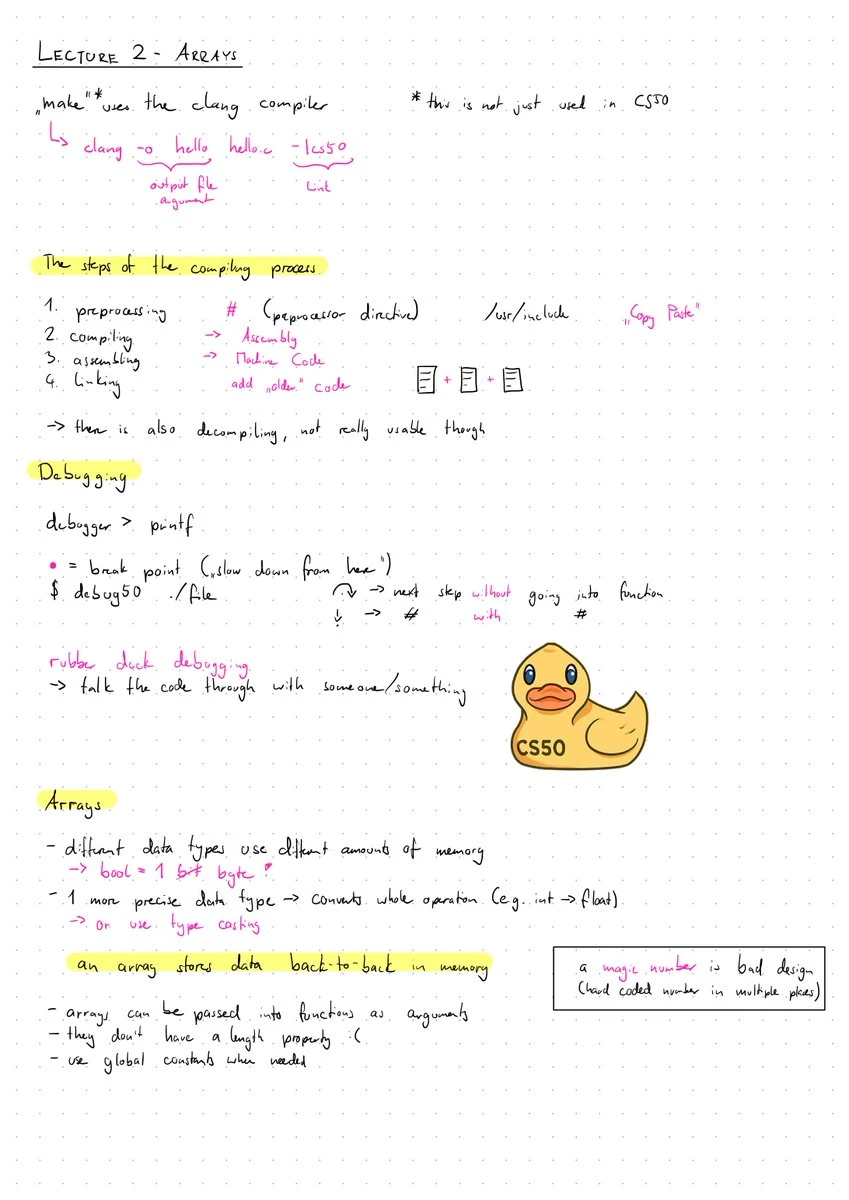 LECTURE 2 - ARRAYS
„make"* uses the clang compiler
* this is not just used in CS50
↳ clang -o hello hello.c -lcs50
output file argument
link
The steps of the compiling process
1. preprocessing # (preprocessor directive) /usr/include „Copy Paste"
2. compiling → Assembly
3. assembling → Machine Code
4. linking add „older" code + +
→ there is also decompiling, not really usable though
Debugging
debugger > printf
• = break point („slow down from here")
$ debug50 ./file
→ next step without going into function
→〃 with 〃
rubber duck debugging
→ talk the code through with someone/something
CS50
Arrays
- different data types use diffrent amounts of memory
→ bool = 1 bit byte !
- 1 more precise data type → converts whole operation (e.g. int → float)
→ or use type casting
an array stores data back-to-back in memory
a magic number is bad design
(hard coded number in multiple places)
- arrays can be passed into functions as arguments
- they don't have a length property :(
- use global constants when needed